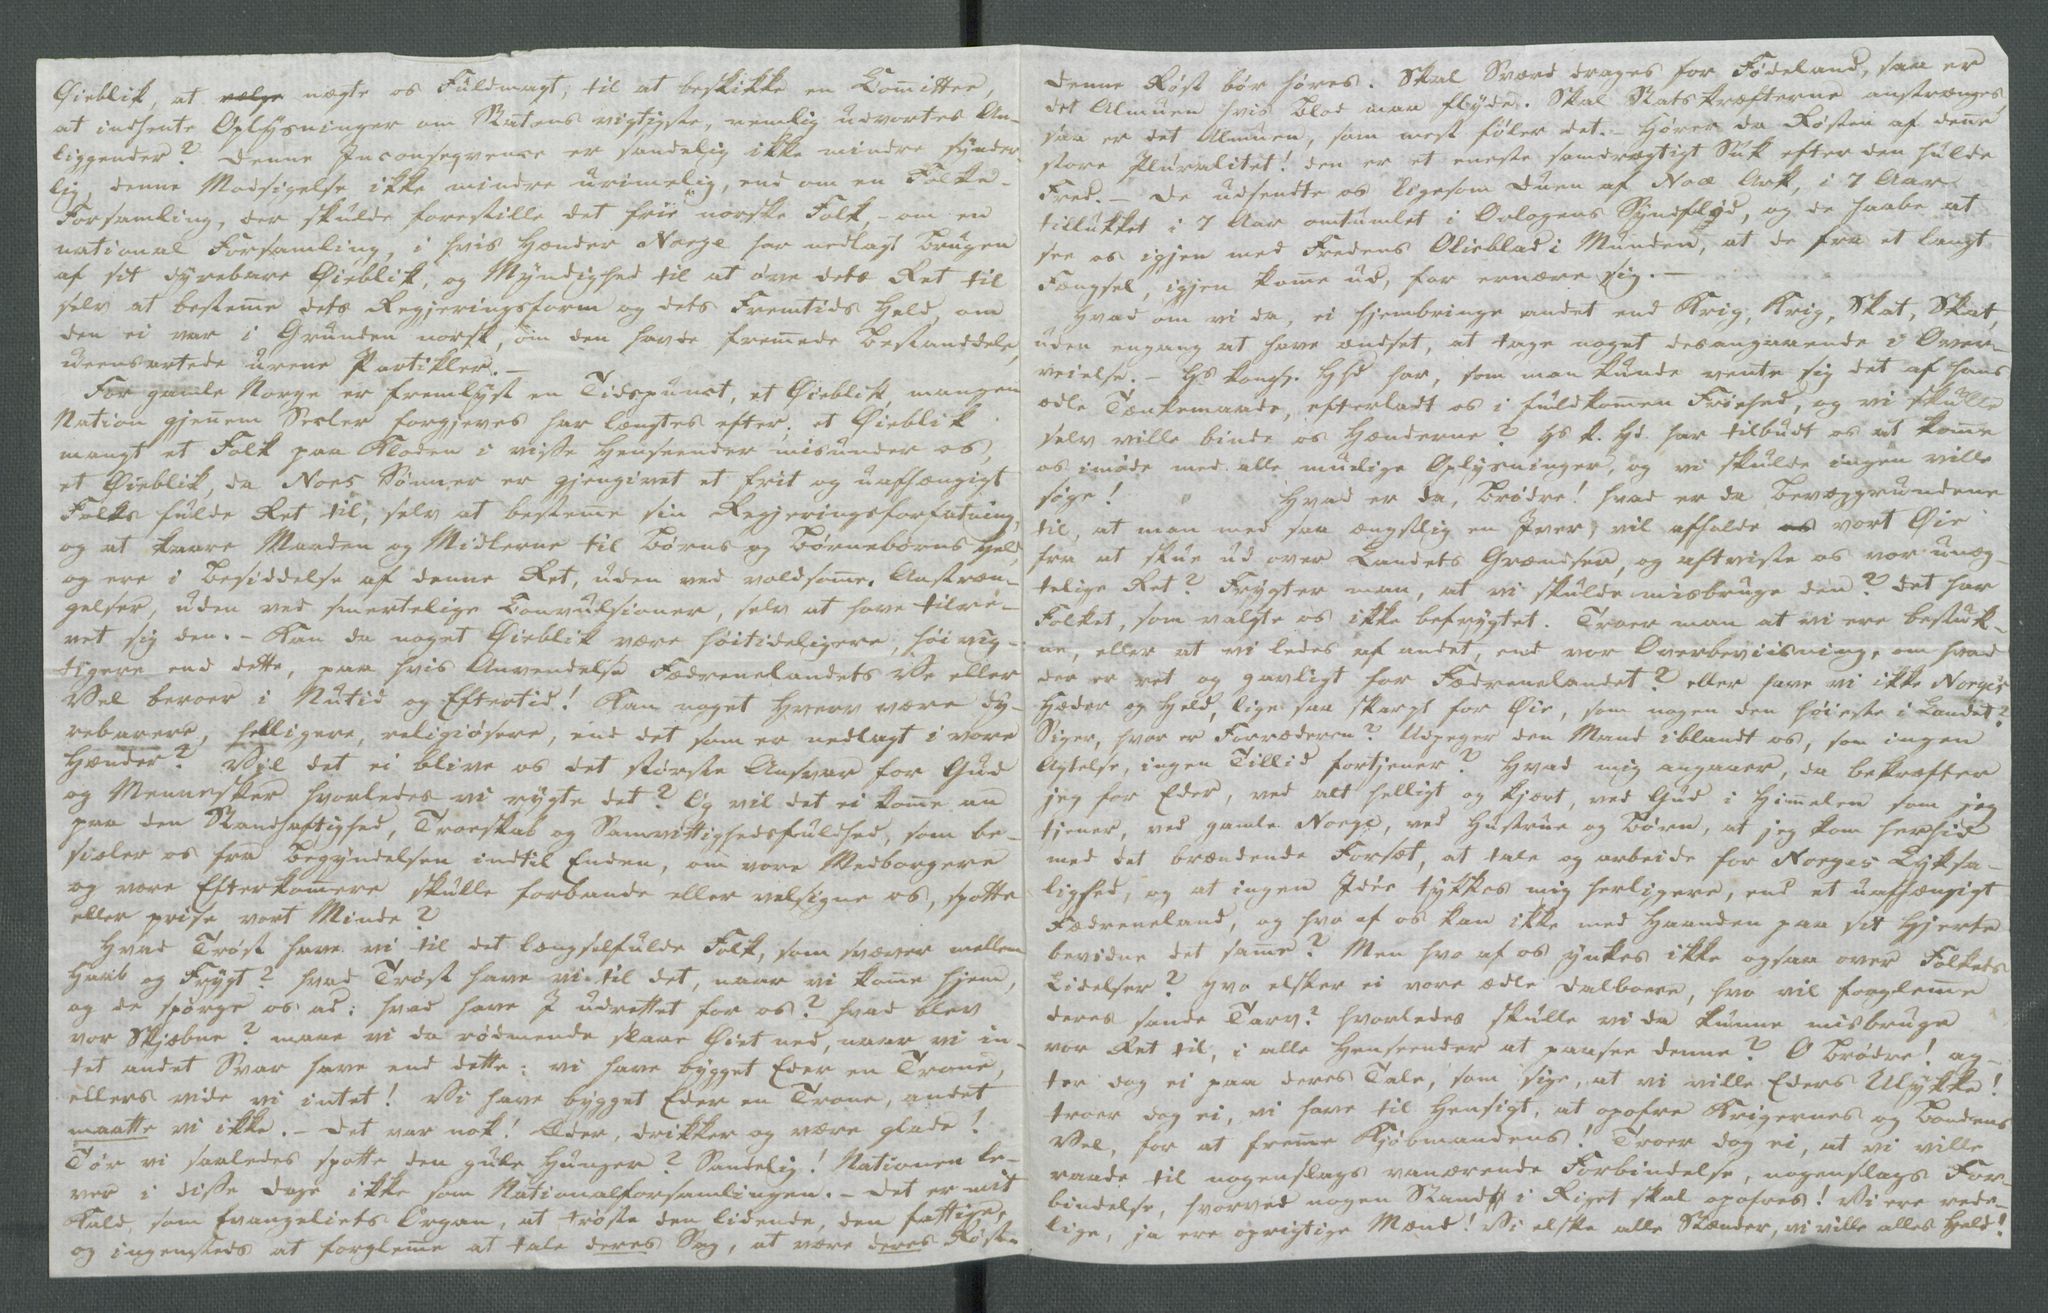 Øieblik, at vælge nægte os Fuldmagt, til at beskikke en Committee,
at indhente Oplysninger om Statens vigtigste, nemlig udvortes An-
liggender? Denne Inconseqvence er sandelig ikke mindre synder-
lig, denne Modsigelse ikke mindre urimelig, end om en Folke-
Forsamling, der skulde forestille det frie norske Folk, – om en
national Forsamling, i hvis Hænder Norge har nedlagt Brugen
af sit dyrebare Øieblik, og Myndighed til at øve dets Ret til
selv at bestemme dets Regjeringsform og dets Fremtids Held, om
den ei var i Grunden norsk, om den havde fremmede Bestanddele,
ueensartede urene Partikler. –
For gamle Norge er fremlyst en Tidspunct, et Øieblik, mangen
Nation gjennem Secler forgjeves har længtes efter; et Øieblik
mangt et Folk paa Kloden i visse Henseender misunder os,
et Øieblik, da Nors Sønner er gjengivet et frit og uafhængigt
Folks fulde Ret til, selv at bestemme sin Regjeringsforfatning,
og at kaare Maaden og Midlerne til Børns og Børnebørns Held,
og ere i Besiddelse af denne Ret, uden ved voldsomme Anstræn-
gelser, uden ved smertelige Convulsioner, selv at have tilrè-
vet sig den. – Kan da noget Øieblik være høitideligere, høivig-
tigere end dette, paa hvis Anvendelse Fædrenelandets Ve eller
Vel beroer i Nutid og Eftertid! Kan noget Hverv være dy-
rebarere, helligere, religiösere, end det som er nedlagt i vore
Hænder? Vil det ei blive os det største Ansvar for Gud
og Mennesker hvorledes vi rygte det? Og vil det ei komme an
paa den Standhaftighed, Troeskab og Samvittighedsfuldhed, som be-
siæler os fra Begyndelsen indtil Enden, om vore Medborgere
og vore Efterkommere skulle forbande eller velsigne os, spotte
eller prise vort Minde?
Hvad Trøst have vi til det længselfulde Folk, som svæver mellem
Haab og Frygt? hvad Trøst have vi til det, naar vi komme hjem,
og de spørge os ad: hvad have I udrettet for os? hvad blev
vor Skjæbne? maae vi da rødmende slaae Øiet ned, naar vi in-
tet andet Svar have end dette: vi have bygget Eder en Trone,
ellers vide vi intet! Vi have bygget Eder en Trone, andet
maatte vi ikke. – Det var nok! Æder, drikker og være glade!
Tør vi saaledes spotte den gule Hunger? Sandelig! Nationen le-
ver i disse Dage ikke som Nationalforsamlingen. – Det er mit
Kald, som Evangeliets Organ, at trøste den lidende, den fattige,
og ingensteds at forglemme at tale deres Sag, at være deres Røst.
Denne Røst bør høres. Skal Sværd drages for Fødeland, saa er
det Almuen hvis Blod maa flyde. Skal Statskræfterne anstrænges,
saa er det Almuen, som mest føler det. – Hører da Røsten af denne
store Pluralitet! den er et eneste samdrægtigt Suk efter den hulde
Fred. – De udsendte os ligesom Duen af Noæ Ark, i 7 Aar
tillukket i 7 Aar omtumlet i Orlogens Syndflod, og de haabe at
see os igjen med Fredens Olieblad i Munden, at de fra et langt
Fængsel, igjen komme ud, for ernære sig. –
Hvad om vi da, ei hjembringe andet end Krig, Krig, Skat, Skat,
uden engang at have ændset, at tage noget desangaaende i Over-
veielse. – Hs kongl. Hhd har, som man kunde vente sig det af hans
ædle Tænkemaade, efterladt os i fuldkommen Friehed, og vi skulle
selv ville binde os Hænderne? Hs k. Hd. har tilbudt os at komme
os imøde med alle mulige Oplysninger, og vi skulde ingen ville
søge! Hvad er da, Brødre! hvad er da Bevæggrundene
til, at man med saa ængstlig en Iver, vil afholde os vort Øie
fra at skue ud over Landets Grændser, og aftviste os vor unæg-
telige Ret? Frygter man, at vi skulde misbruge den? Det har
Folket, som valgte os ikke befrygtet. Troer man at vi ere bestuk-
ne, eller at vi ledes af andet, end vor Overbeviisning, om hvad
der er ret og gavligt for Fædrenelandet? eller have vi ikke Norges
Hæder og Held, lige saa skarpt for Øie, som nogen den høieste i Landet?
Siger, hvor er Forræderen? Udpeger den Mand iblandt os, som ingen
Agtelse, ingen Tillid fortjener? Hvad mig angaaer, da bekræfter
jeg for Eder, ved alt helligt og kjært, ved Gud i Himmelen som jeg
tjener, ved gamle Norge, ved Hustrue og Børn, at jeg kom herhid
med det brændende Forsæt, at tale og arbeide for Norges Lyksa-
lighed, og at ingen Idée tykkes mig herligere, end et uafhængigt
Fædreneland, og hvo af os kan ikke med Haanden paa sit Hjerte
bevidne det samme? Men hvo af os ynkes ikke ogsaa over Folkets
Lidelser? Hvo elsker ei vore ædle Dalboere, hvo vil forglemme
deres sande Tarv? hvorledes skulle vi da kunne misbruge
vor Ret til, i alle Henseender at paasee denne? O Brødre! ag-
ter dog ei paa deres Tale, som sige, at vi ville Eders Ulykke!
troer dog ei, vi have til Hensigt, at opofre Krigernes og Bondens
Vel, for at fremme Kjøbmandens! Troer dog ei, at vi ville
raade til nogenslags vanærende Forbindelse, nogenslags For-
bindelse, hvorved nogen Stand i Riget skal opofres! Vi ere rede-
lige, ja ere oprigtige Mænd! Vi elske alle Stænder, vi ville alles Held!